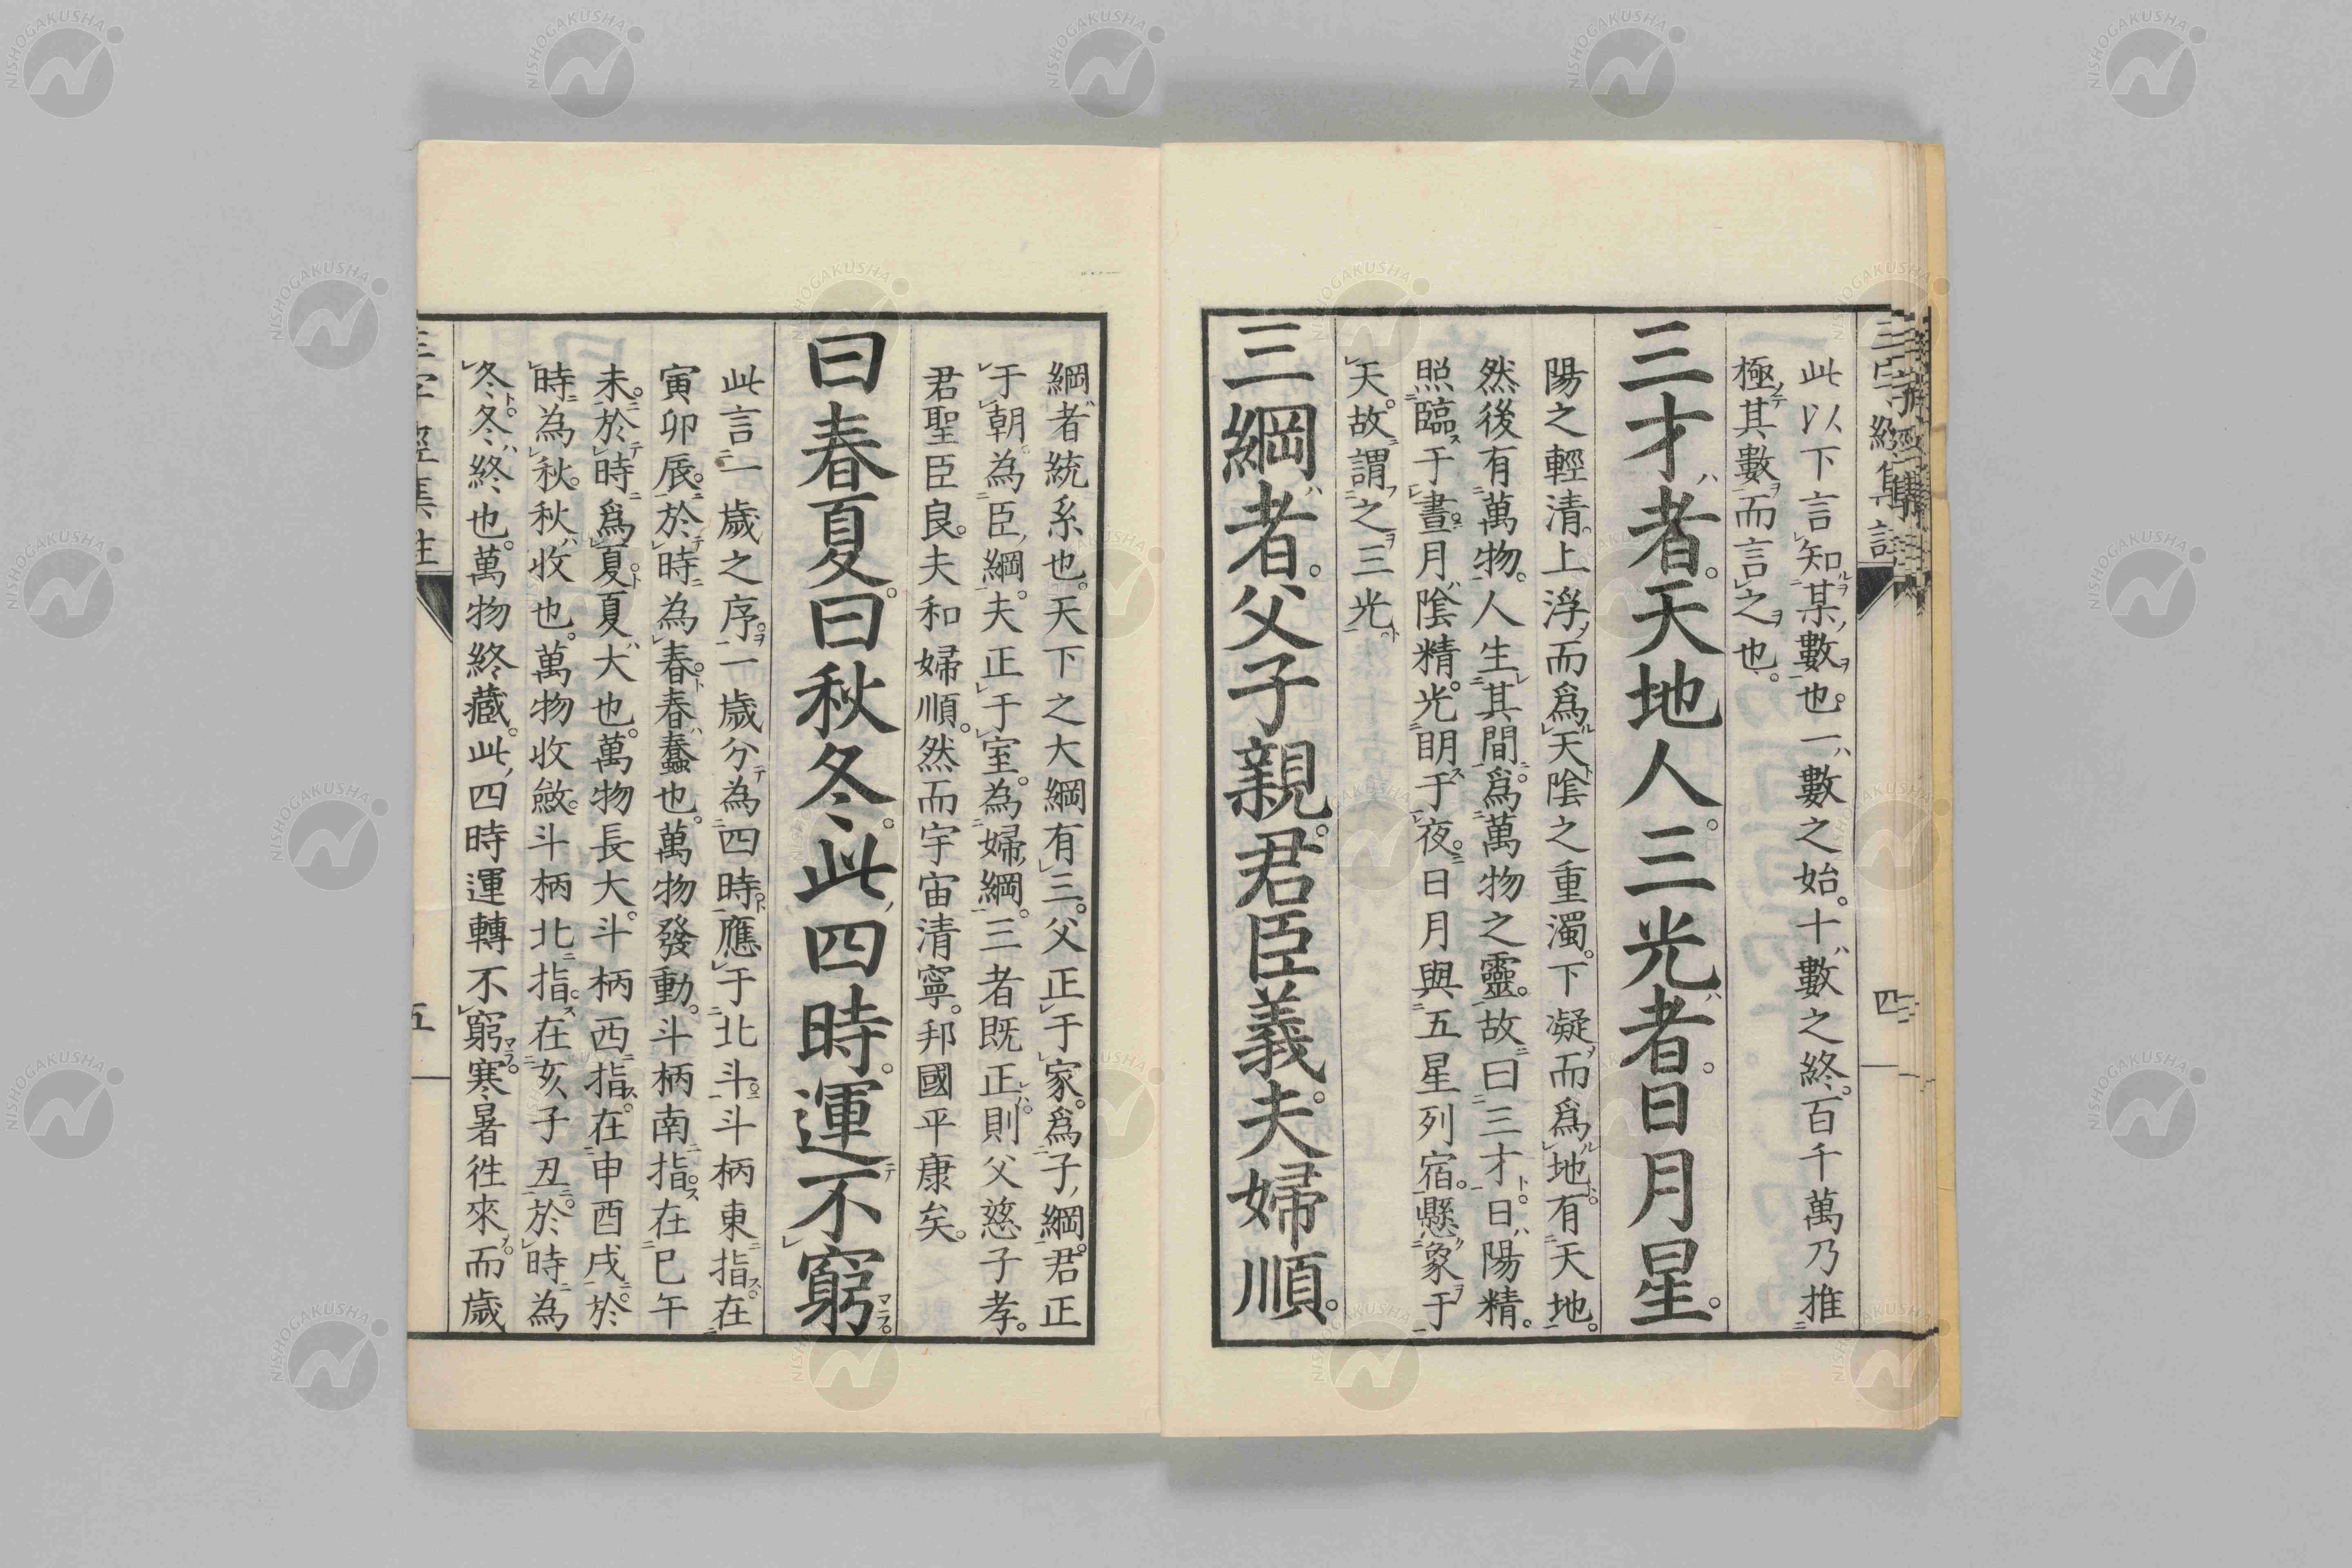 此以下言知某數也一數之始。十數之終。百千萬乃推
極其數而言之也。
三才者。天地人。三光者。日月星。
陽之輕清。上浮而爲天陰之重濁。下凝而爲地。有天地。
然後有萬物。人生其間。爲萬物之靈。故曰三才。日陽精。
照臨于晝。月陰精。光明于夜。日月與五星列宿。懸象于
天。故謂之三光。
三綱者。父子親。君臣義。夫婦順。
綱者統系也。天下之大綱有三。父正于家。爲子綱。君正
于朝。為臣綱。夫正于室。為婦綱。三者既正。則父慈子孝。
君聖臣良。夫和婦順。然而宇宙清寧。邦國平康矣。
曰春夏。曰秋冬。此四時。運不窮。
此言一歲之序。一歲分為四時。應于北斗。斗柄東指。在
寅卯辰。於時為春。春蠢也。萬物發動。斗柄南指。在巳午
未。於時爲夏。夏大也。萬物長大。斗柄西指。在申酉戌。於
時為秋。秋收也。萬物收斂。斗柄北指。在亥子丑。於時為
冬。冬終也。萬物終藏。此四時運轉不窮。寒暑往來。而歲
三字經集註
四
五
NISHOGAKUSHA